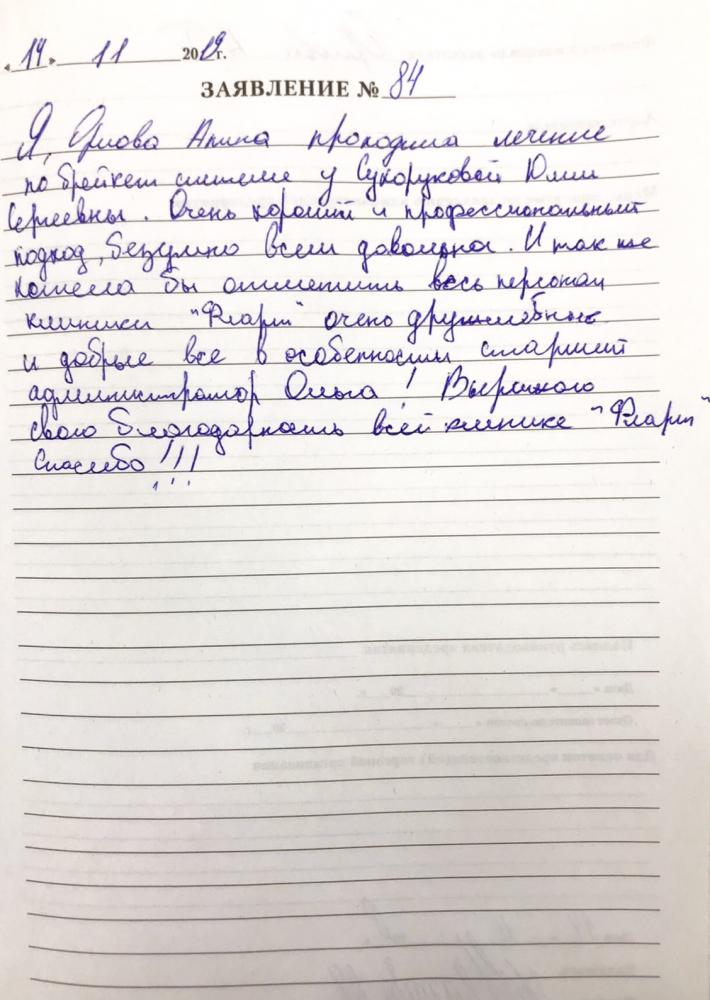 «14» 11 2019г.
ЗАЯВЛЕНИЕ № 84
Я, Орлова Алина проходила лечение
по брейкет системе у Сухоруковой Юлии
Сергеевны. Очень хороший и профессиональный
подход, безумно всем довольна. И так же
хотела бы отметить весь персонал
клиники "Фларт" очень дружелюбные
и добрые все в особенности старший
администратор Ольга! Выражаю
свою благодарность всей клинике "Фларт"
Спасибо!!!